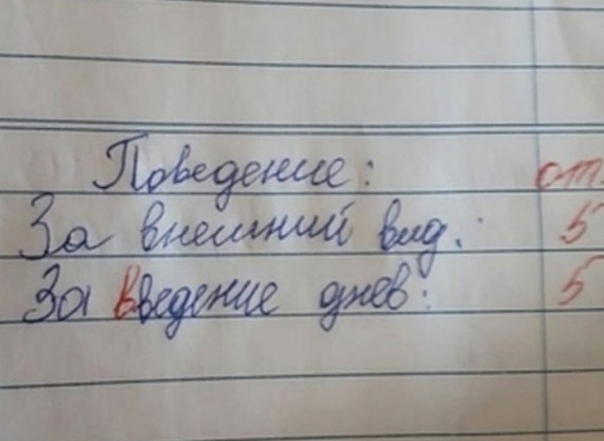 Поведение: от.
За внешний вид.: 5
За введение днев: 5